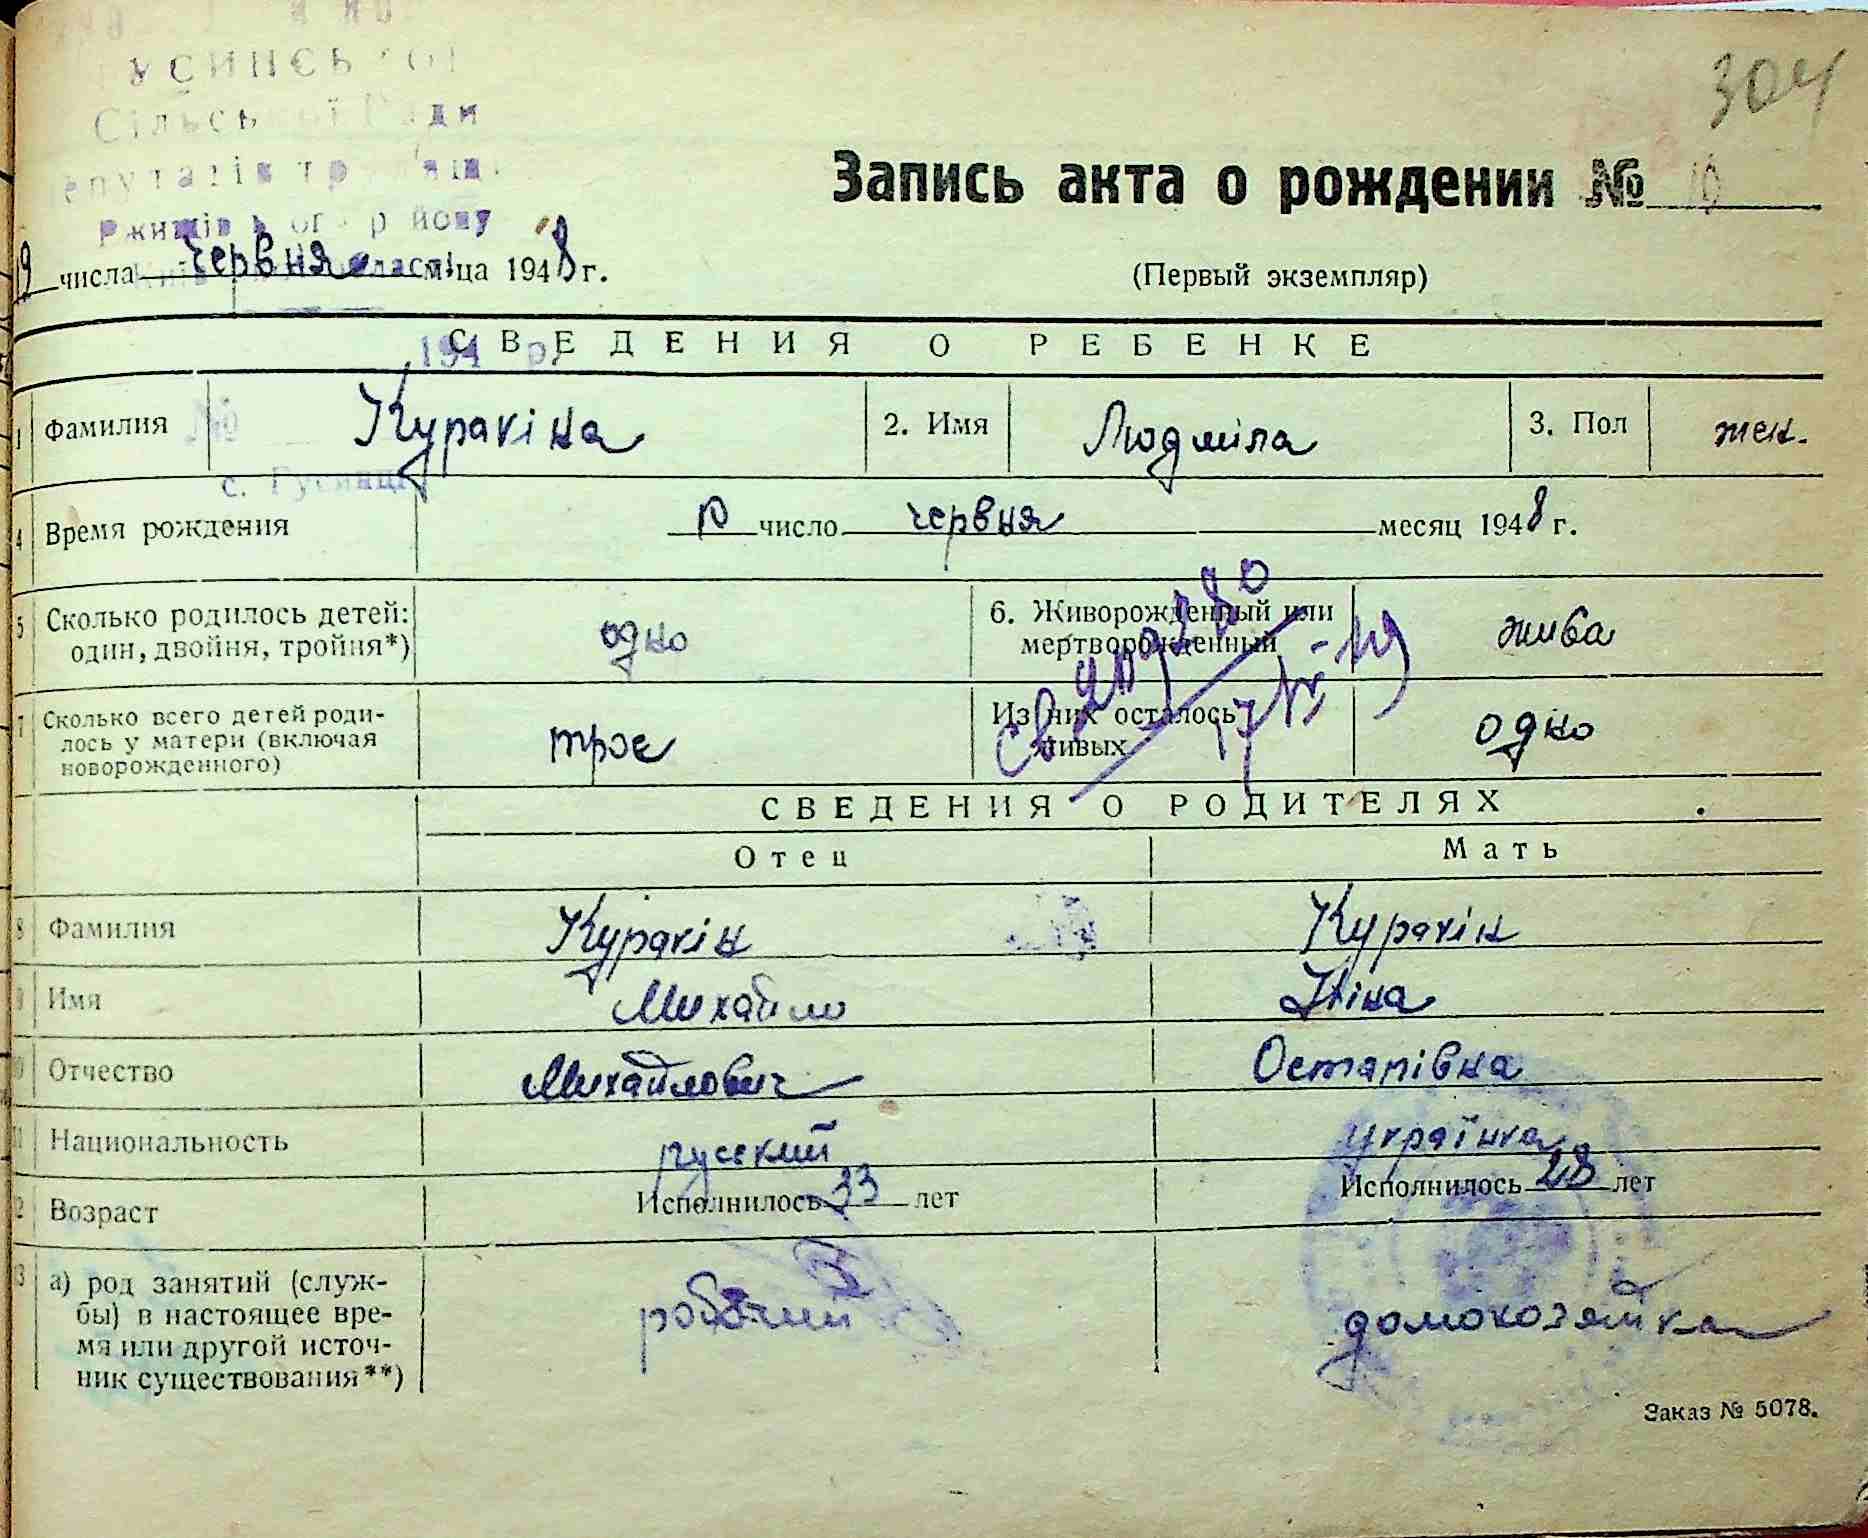 304
Сільської Ради
Запись акта о рождении № 10
9 числа червня м-ца 1948 г.
(Первый экземпляр)
194 р.
СВЕДЕНИЯ О РЕБЕНКЕ
1 Фамилия Куракіна 2. Имя Людміла 3. Пол жен.
№
с. Гусинці
4 Время рождения 10 число червня месяц 1948 г.
5 Сколько родилось детей: один, двойня, тройня*) одно 6. Живорожденный или мертворожденный жива
7 Сколько всего детей родилось у матери (включая новорожденного) троє Из них осталось живых одно
СВЕДЕНИЯ О РОДИТЕЛЯХ
Отец Мать
8 Фамилия Куракін Куракін
9 Имя Михайло Ніна
10 Отчество Михайлович Остапівна
11 Национальность русский українка
12 Возраст Исполнилось 33 лет Исполнилось 28 лет
13 а) род занятий (службы) в настоящее время или другой источник существования**) робочий домохозяйка
Заказ № 5078.